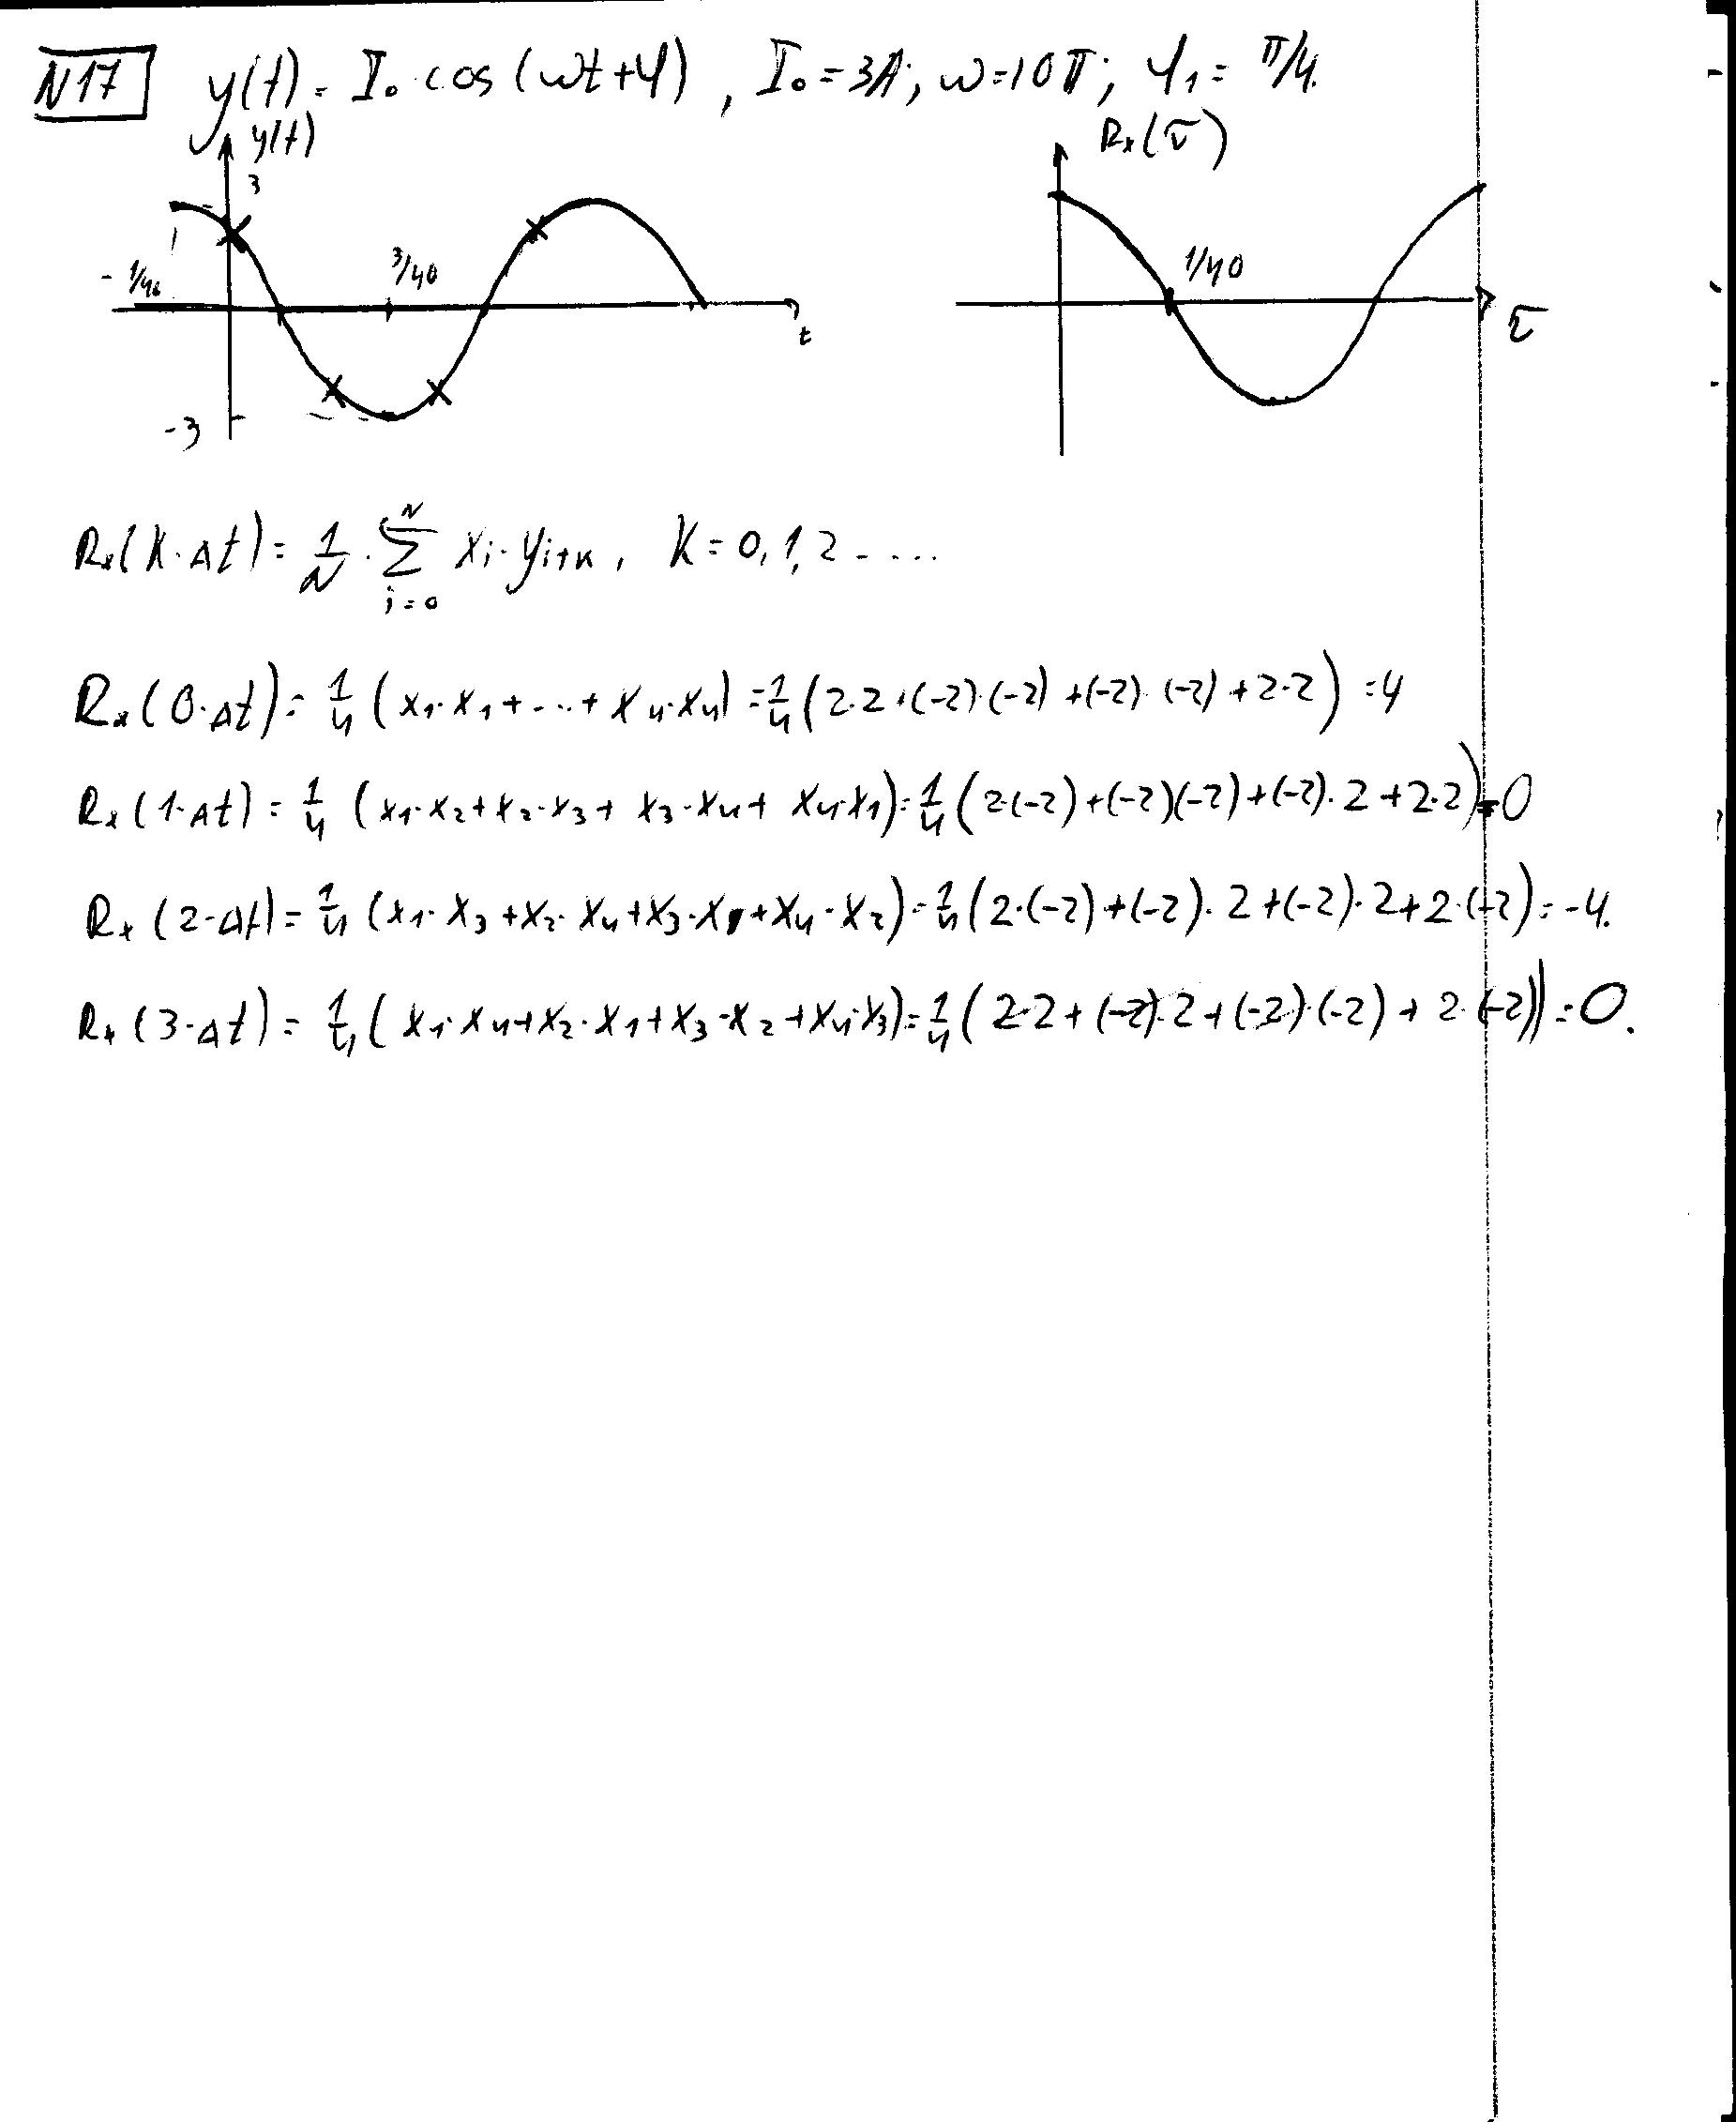 N17 y(t) = I₀ cos(ωt+φ), I₀=3A; ω=10π; φ₁= π/4.
y(t)
3
-1/40
3/40
t
-3
Rₓ(τ)
1/40
τ
Rₓ(K·Δt)= 1/N · Σ_{i=0}^{N} xᵢ·yᵢ₊ₖ, K=0,1,2 ....
Rₓ(0·Δt)= 1/4 (x₁·x₁+...+x₄·x₄) = 1/4 (2·2+(-2)·(-2)+(-2)·(-2)+2·2) =4
Rₓ(1·Δt) = 1/4 (x₁·x₂+x₂·x₃+ x₃·x₄+ x₄·x₁)= 1/4 (2·(-2)+(-2)(-2)+(-2)·2+2·2)=0
Rₓ(2·Δt)= 1/4 (x₁·x₃+x₂·x₄+x₃·x₁+x₄·x₂)= 1/4 (2·(-2)+(-2)·2+(-2)·2+2·(-2))=-4.
Rₓ(3·Δt)= 1/4 (x₁·x₄+x₂·x₁+x₃·x₂+x₄·x₃)= 1/4 (2·2+(-2)·2+(-2)·(-2)+2·(-2))=0.